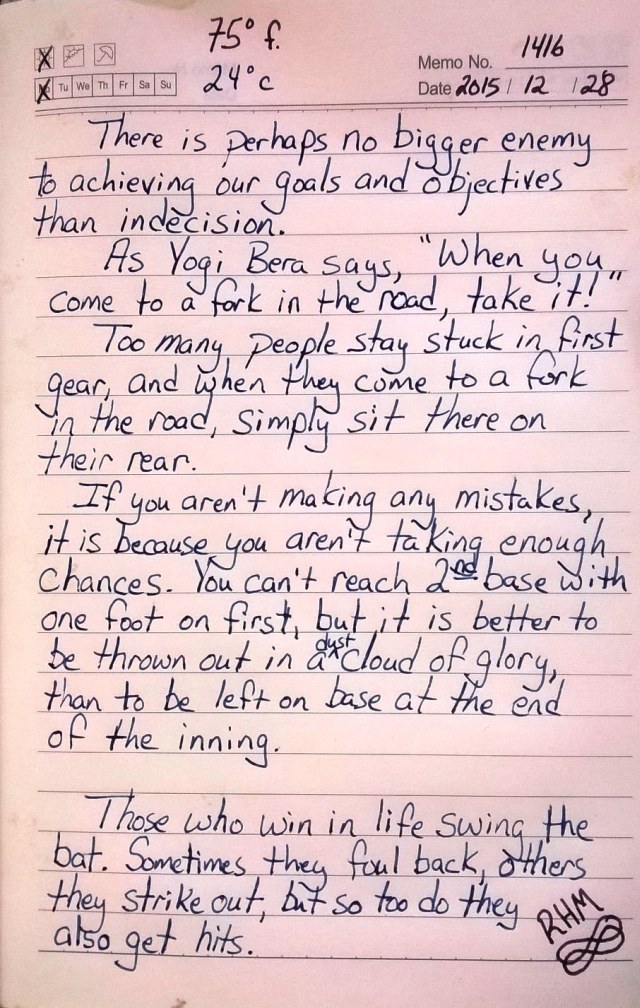 75° f.
24°c
Memo No. 1416
Tu We Th Fr Sa Su
Date 2015 / 12 / 28
There is perhaps no bigger enemy
to achieving our goals and objectives
than indecision.
As Yogi Bera says, "When you
come to a fork in the road, take it!"
Too many people stay stuck in first
gear, and when they come to a fork
in the road, simply sit there on
their rear.
If you aren't making any mistakes,
it is because you aren't taking enough
Chances. You can't reach 2nd base with
one foot on first, but it is better to
be thrown out in a dust cloud of glory,
than to be left on base at the end
of the inning.
Those who win in life swing the
bat. Sometimes they foul back, others
they strike out, but so too do they
also get hits.
RHM